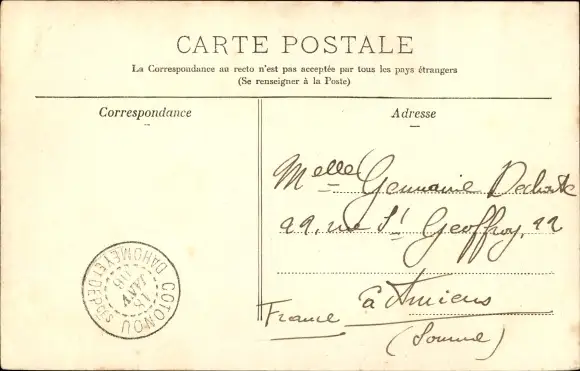 CARTE POSTALE
La Correspondance au recto n'est pas acceptée par tous les pays étrangers
(Se renseigner à la Poste)
Correspondance
Adresse
Melle Germaine
22, rue St Geoffroy, 22
à Amiens
France
(Somme)
COTONOU
DAHOMEY ET DEP.CES
15
JANV